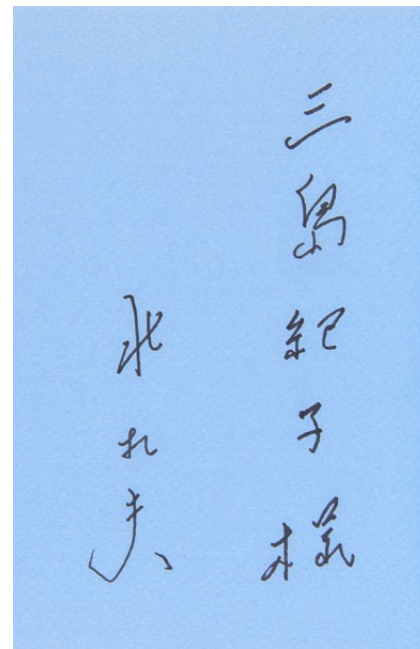 三島紀子様
北杜夫